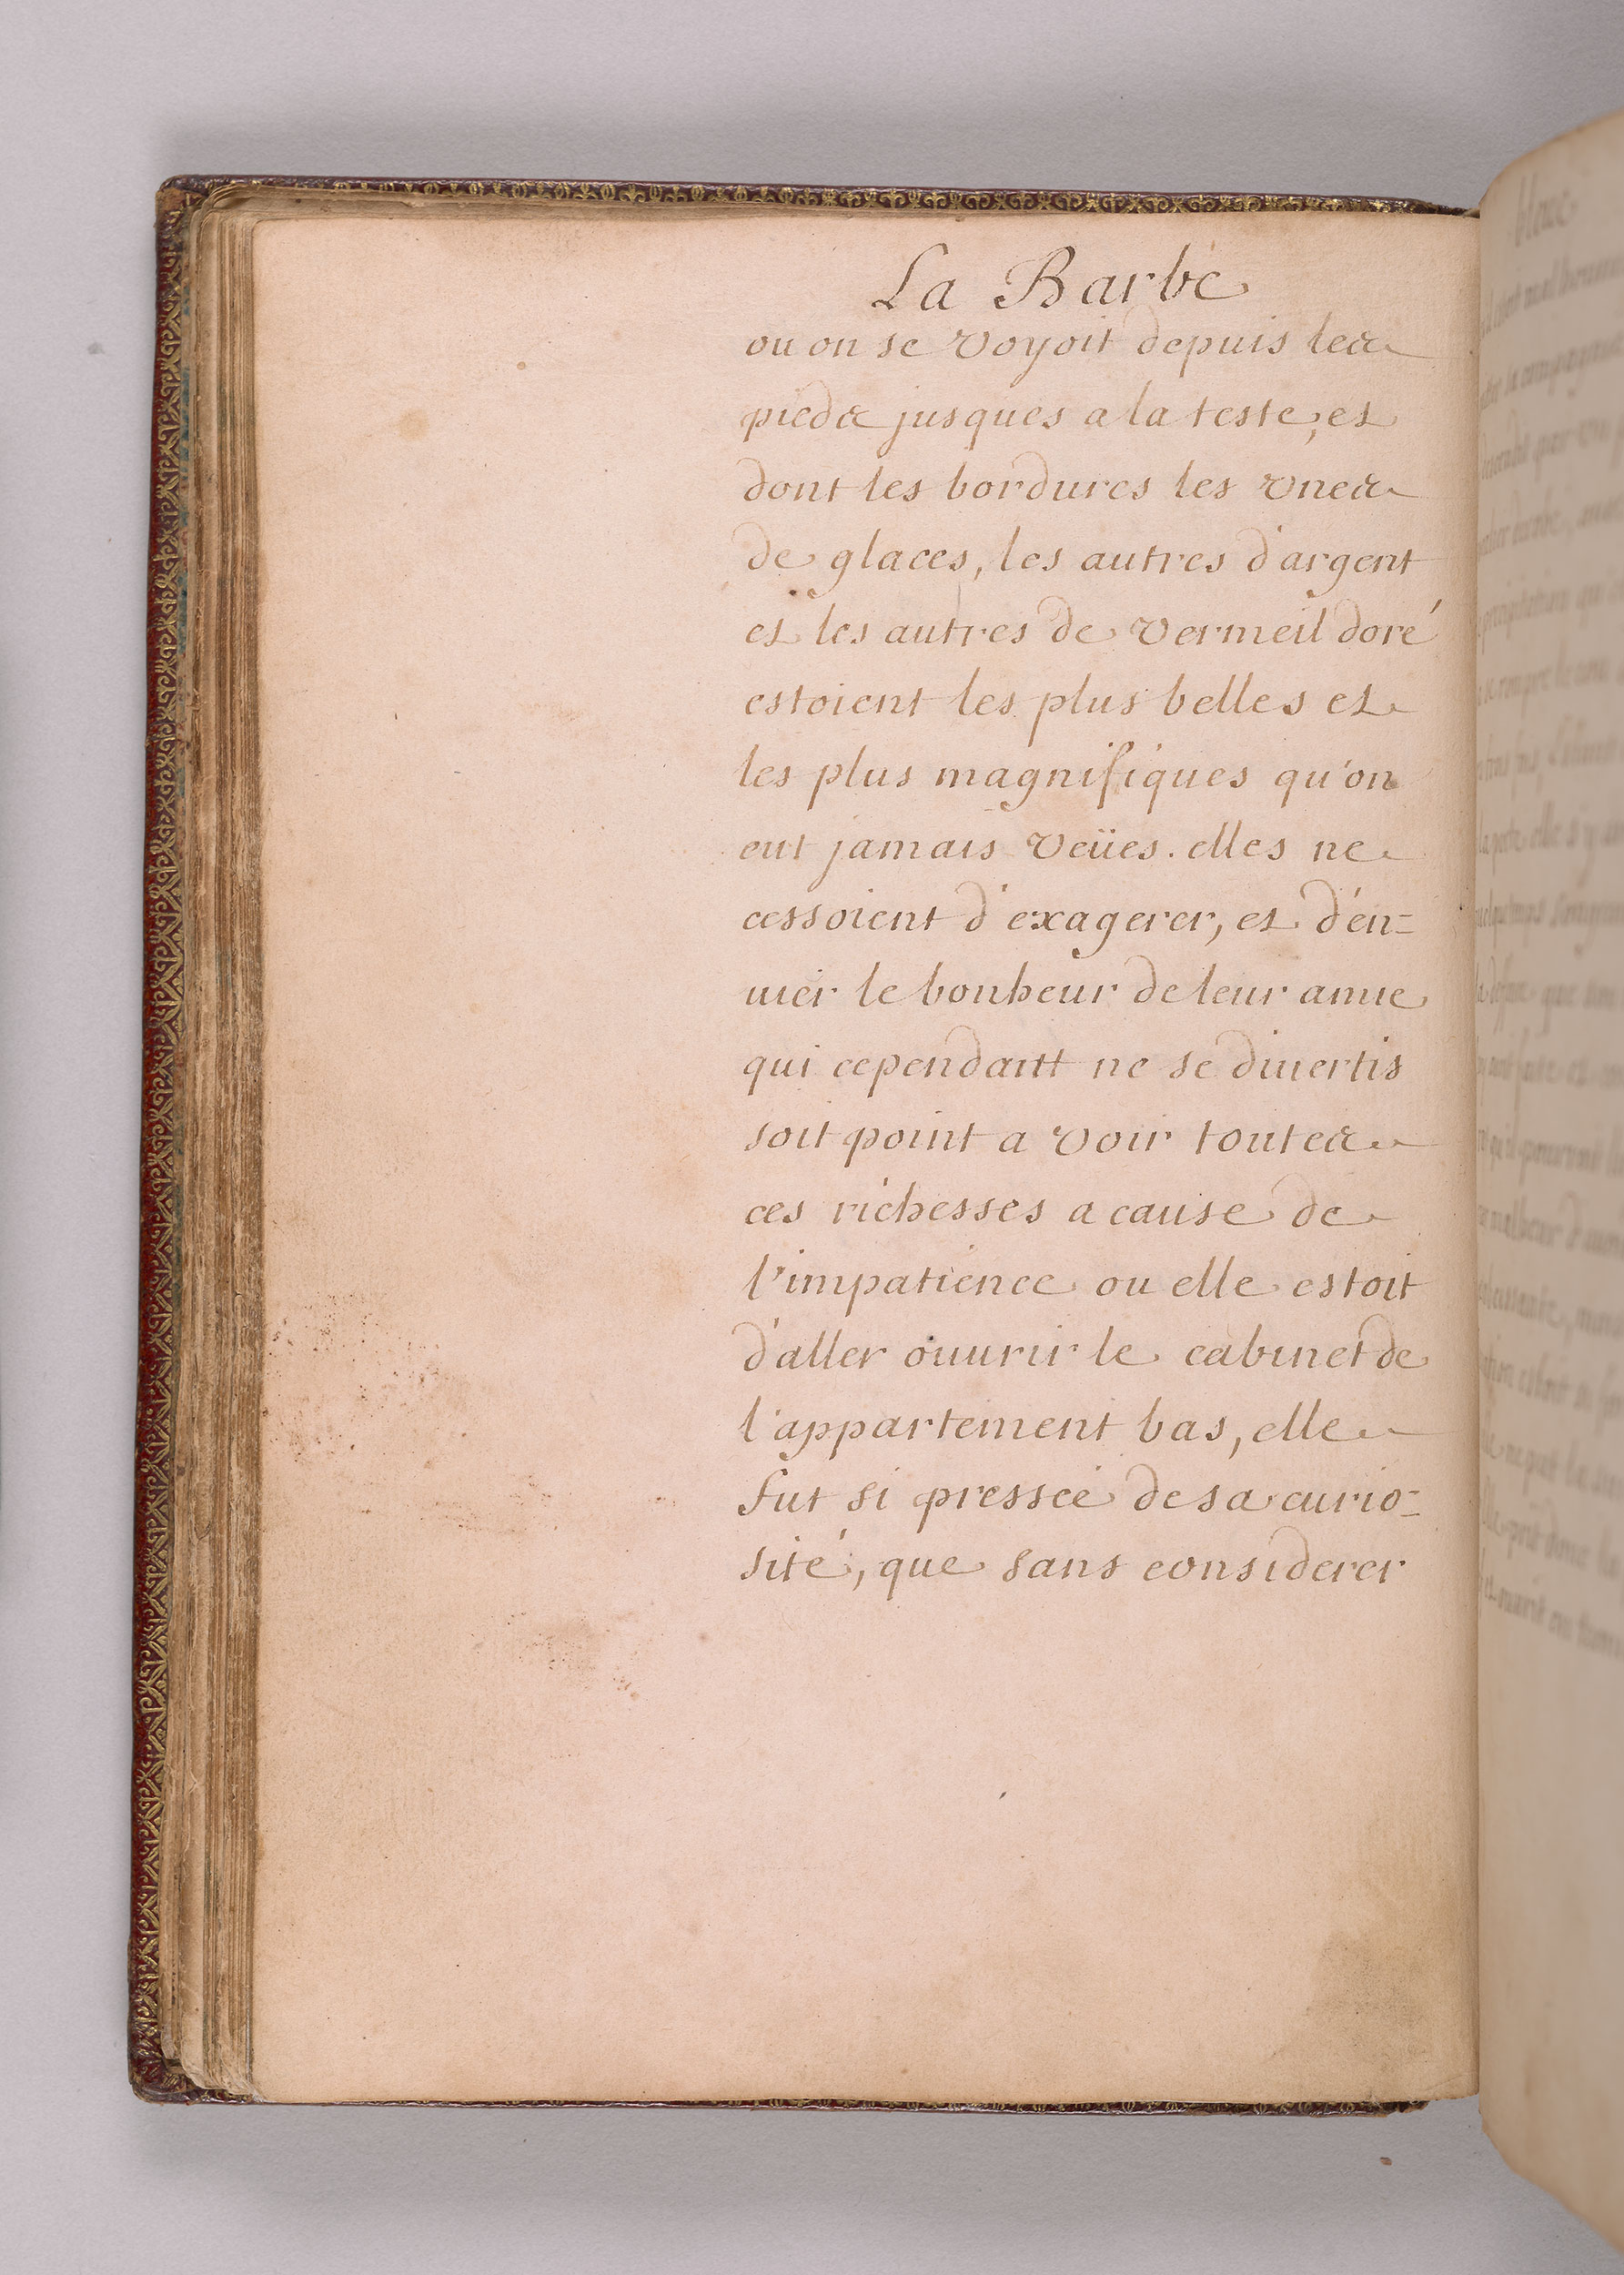 La Barbe
ou on se voyoit depuis les
pieds jusques a la teste, et
dont les bordures les vnes
de glaces, les autres d'argent
et les autres de vermeil doré
estoient les plus belles et
les plus magnifiques qu'on
eut jamais veües. elles ne
cessoient d'exagerer, et d'en=
uier le bonheur de leur amie
qui cependant ne se diuertis
soit point a voir toutes
ces richesses a cause de
l'impatience ou elle estoit
d'aller ouurir le cabinet de
l'appartement bas, elle
fut si pressée de sa curio=
sité, que sans considerer